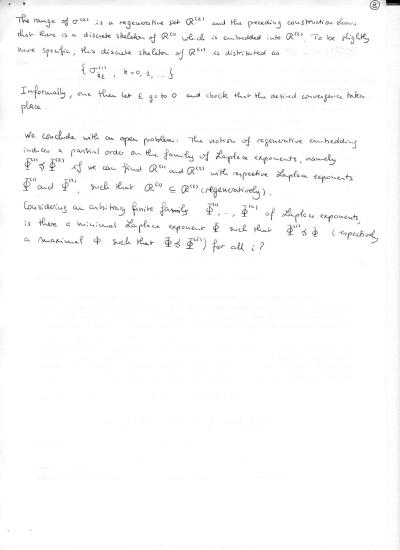 ⑧
The range of σ^(2) is a regenerative set R^(2) and the preceding construction shows
that there is a discrete skeleton of R^(1) which is embedded into R^(2). To be slightly
more specific, this discrete skeleton of R^(1) is distributed as
{ σ^(1)_kε , k=0,1,...}
Informally, one then let ε go to 0 and check that the desired convergence takes
place.
We conclude with an open problem. The notion of regenerative embedding
induces a partial order on the family of Laplace exponents, namely
Φ^(1) ≼ Φ^(2) if we can find R^(1) and R^(2) with respective Laplace exponents
Φ^(1) and Φ^(2), such that R^(1) ⊆ R^(2) (regeneratively).
Considering an arbitrary finite family Φ^(1),.., Φ^(n) of Laplace exponents,
is there a minimal Laplace exponent Φ such that Φ^(i) ≼ Φ (respectively
a maximal Φ such that Φ ≼ Φ^(i)) for all i?